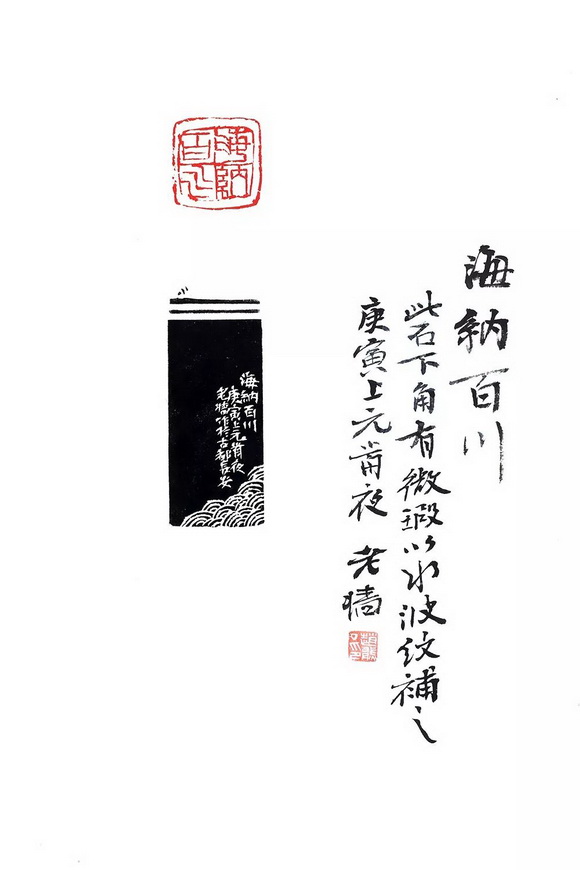 海納百川
海納百川
此石下角有微瑕以水波紋補之
庚寅上元前夜
老墻
海納百川
庚寅上元前夜
老墻作於古都長安